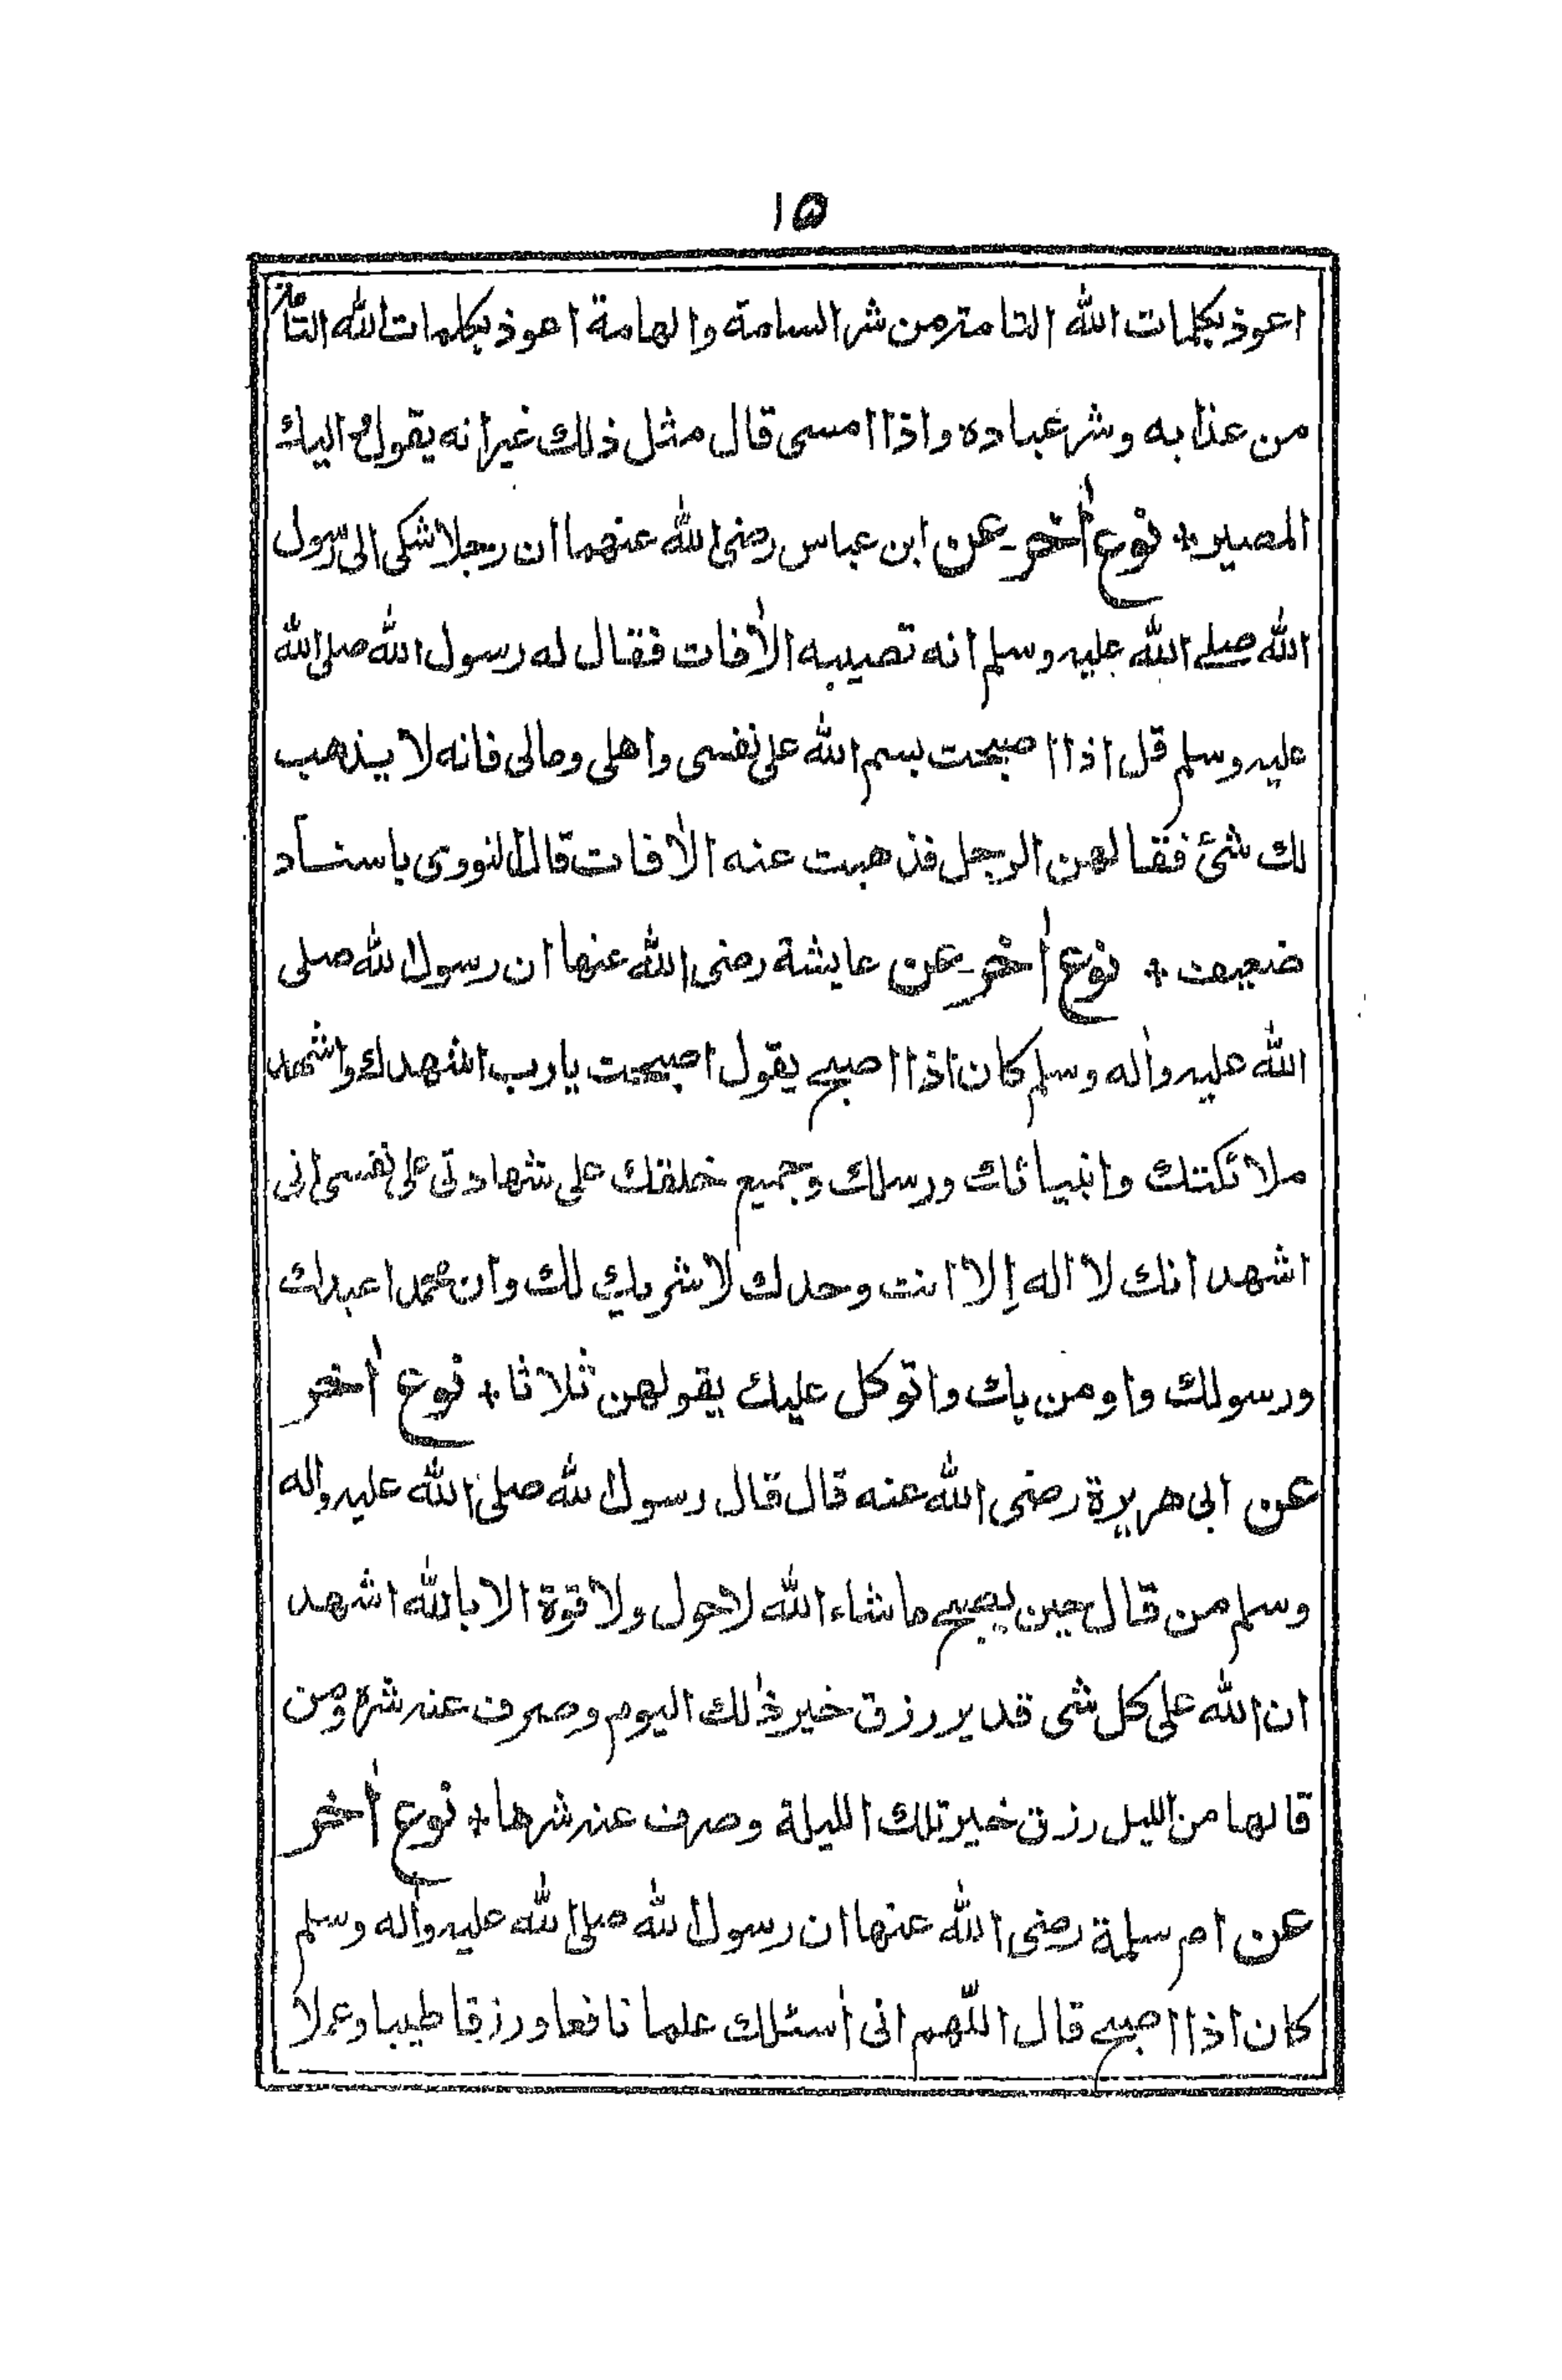 ١٥
اعوذ بكلمات الله التامة من شر السامة والهامة اعوذ بكلمات الله التامة
من عذابه وشر عباده واذا امسى قال مثل ذلك غير انه يقول اليك
المصير * نوع أخر عن ابن عباس رضى الله عنهما ان رجلا شكى الى رسول
الله صلے الله عليه وسلم انه تصيبه الأفات فقال له رسول الله صلى الله
عليه وسلم قل اذا اصبحت بسم الله على نفسى واهلى ومالى فانه لا يذهب
لك شئ فقالهن الرجل فذهبت عنه الأفات قال النووى باسناد
ضعيف * نوع أخر عن عايشة رضى الله عنها ان رسول الله صلى
الله عليه وأله وسلم كان اذا اصبح يقول اصبحت يا رب اشهدك واشهد
ملائكتك وانبيائك ورسلك وجميع خلقك على شهادتى على نفسى انى
اشهد انك لا اله إلا انت وحدك لا شريك لك وان محمدا عبدك
ورسولك واومن بك واتوكل عليك يقولهن ثلاثا * نوع أخر
عن ابى هريرة رضى الله عنه قال قال رسول الله صلى الله عليه وأله
وسلم من قال حين يصبح ماشاء الله لا حول ولا قوة الا بالله اشهد
ان الله على كل شى قدير رزق خير ذلك اليوم وصرف عنه شره ومن
قالها من الليل رزق خير تلك الليلة وصرف عنه شرها * نوع أخر
عن ام سلمة رضى الله عنها ان رسول الله صلى الله عليه وأله وسلم
كان اذا اصبح قال اللهم انى أسئلك علما نافعا ورزقا طيبا وعملا